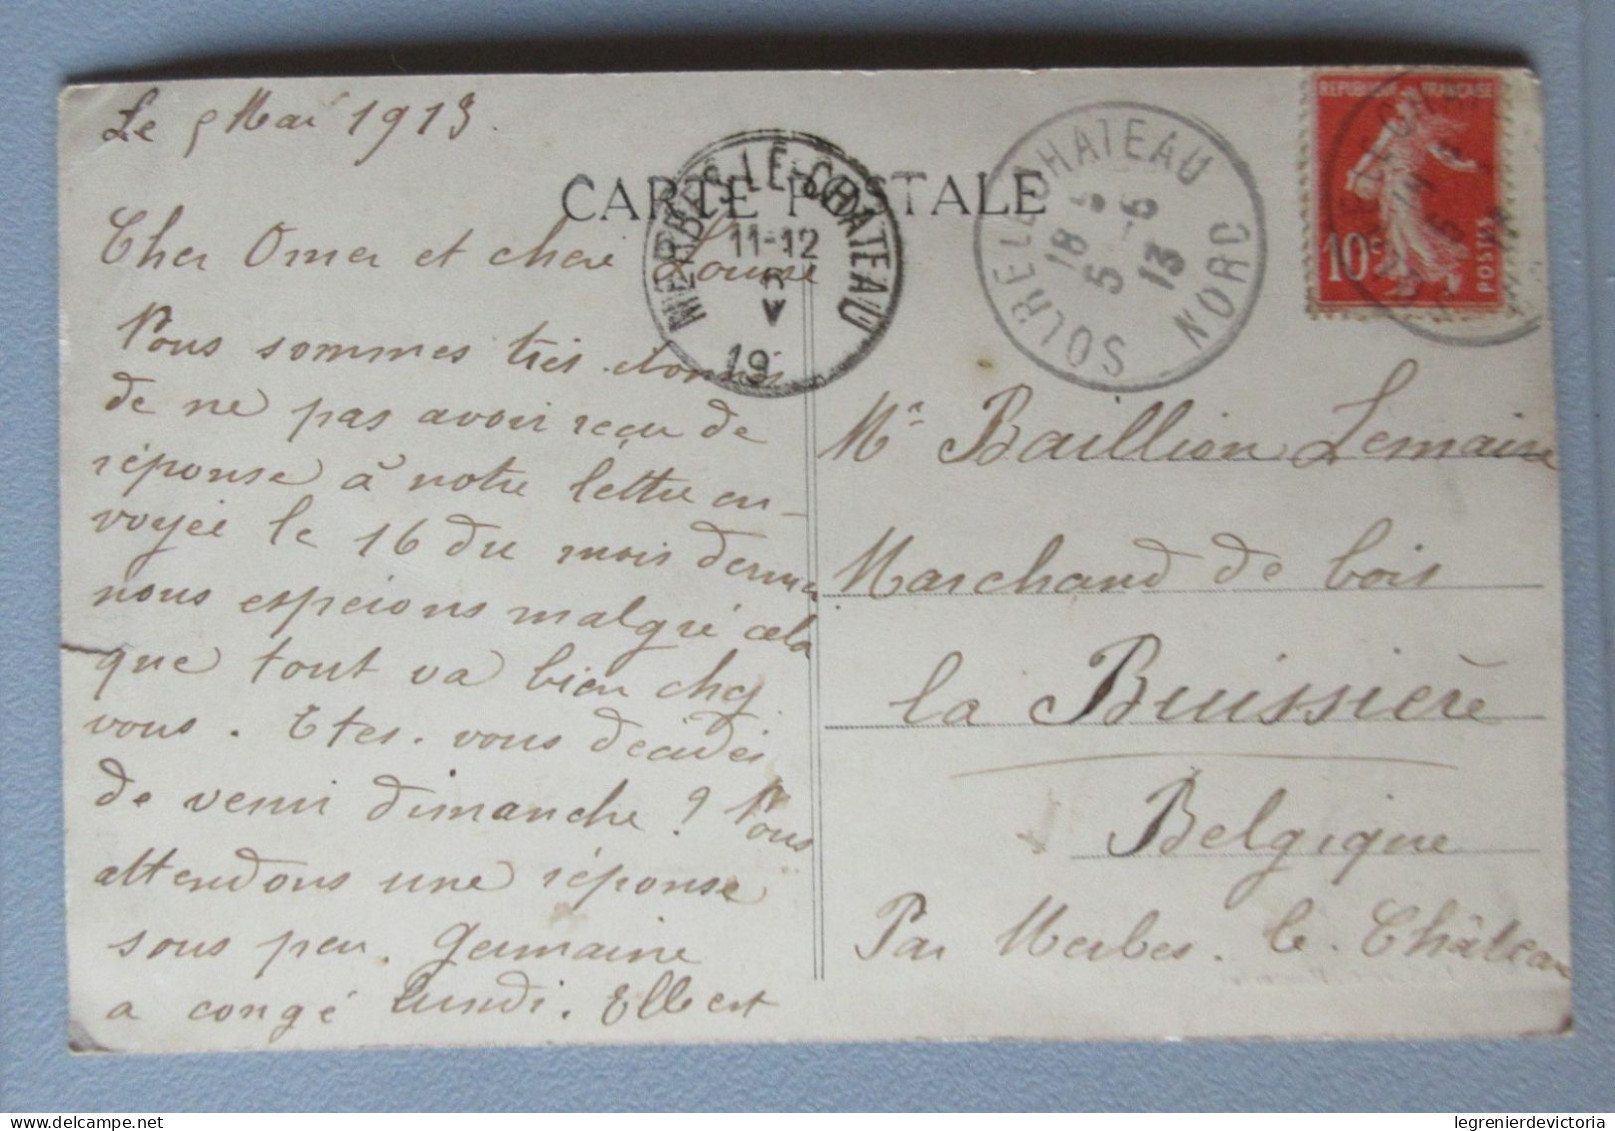 Le 5 Mai 1913.
CARTE POSTALE
MERBES-LE-CHATEAU
11-12
5
V
19
SOLRE LE CHATEAU NORD
18
5 -5
13
REPUBLIQUE FRANÇAISE
10c
POSTES
Cher Omer et chère Louise
Nous sommes très étonnés
de ne pas avoir reçu de
réponse à notre lettre en-
voyée le 16 du mois dernier
nous espérons malgré cela
que tout va bien chez
vous. Etes-vous décidés
de venir dimanche? Nous
attendons une réponse
sous peu. Germaine
a congé lundi. Elle est
Mr Baillion Lemaire
Marchand de bois
la Buissière
Belgique
Par Merbes-le-Château
legrenierdevictoria